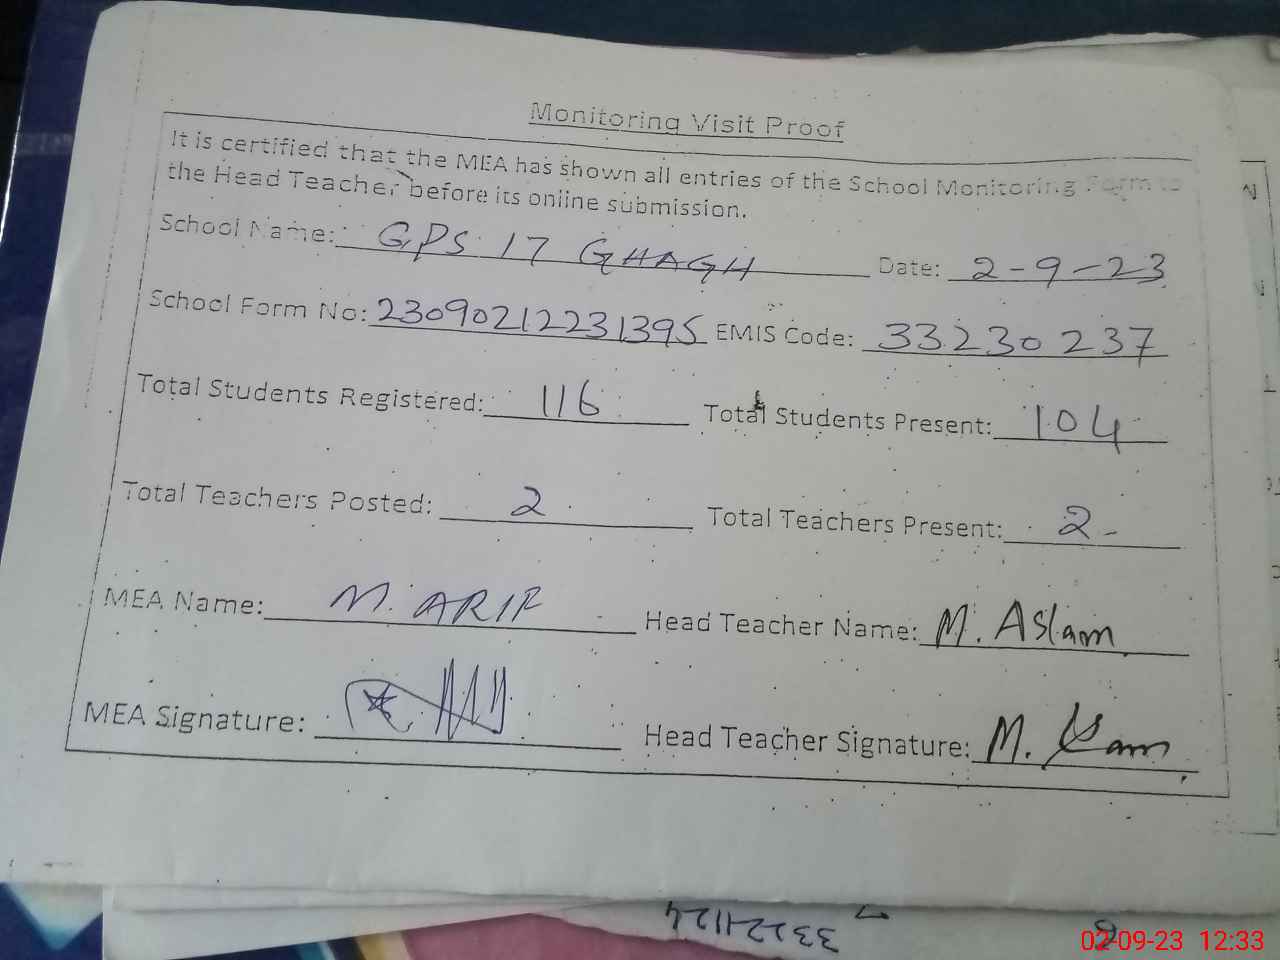 Monitoring Visit Proof
It is certified that the MEA has shown all entries of the School Monitoring Form to
the Head Teacher before its online submission.
School Name: GPS 17 GHAGH Date: 2-9-23
School Form No: 23090212231395 EMIS Code: 33230237
Total Students Registered: 116 Total Students Present: 104
Total Teachers Posted: 2 Total Teachers Present: 2
MEA Name: M. ARIF Head Teacher Name: M. Aslam
MEA Signature: Head Teacher Signature: M.
02-09-23 12:33